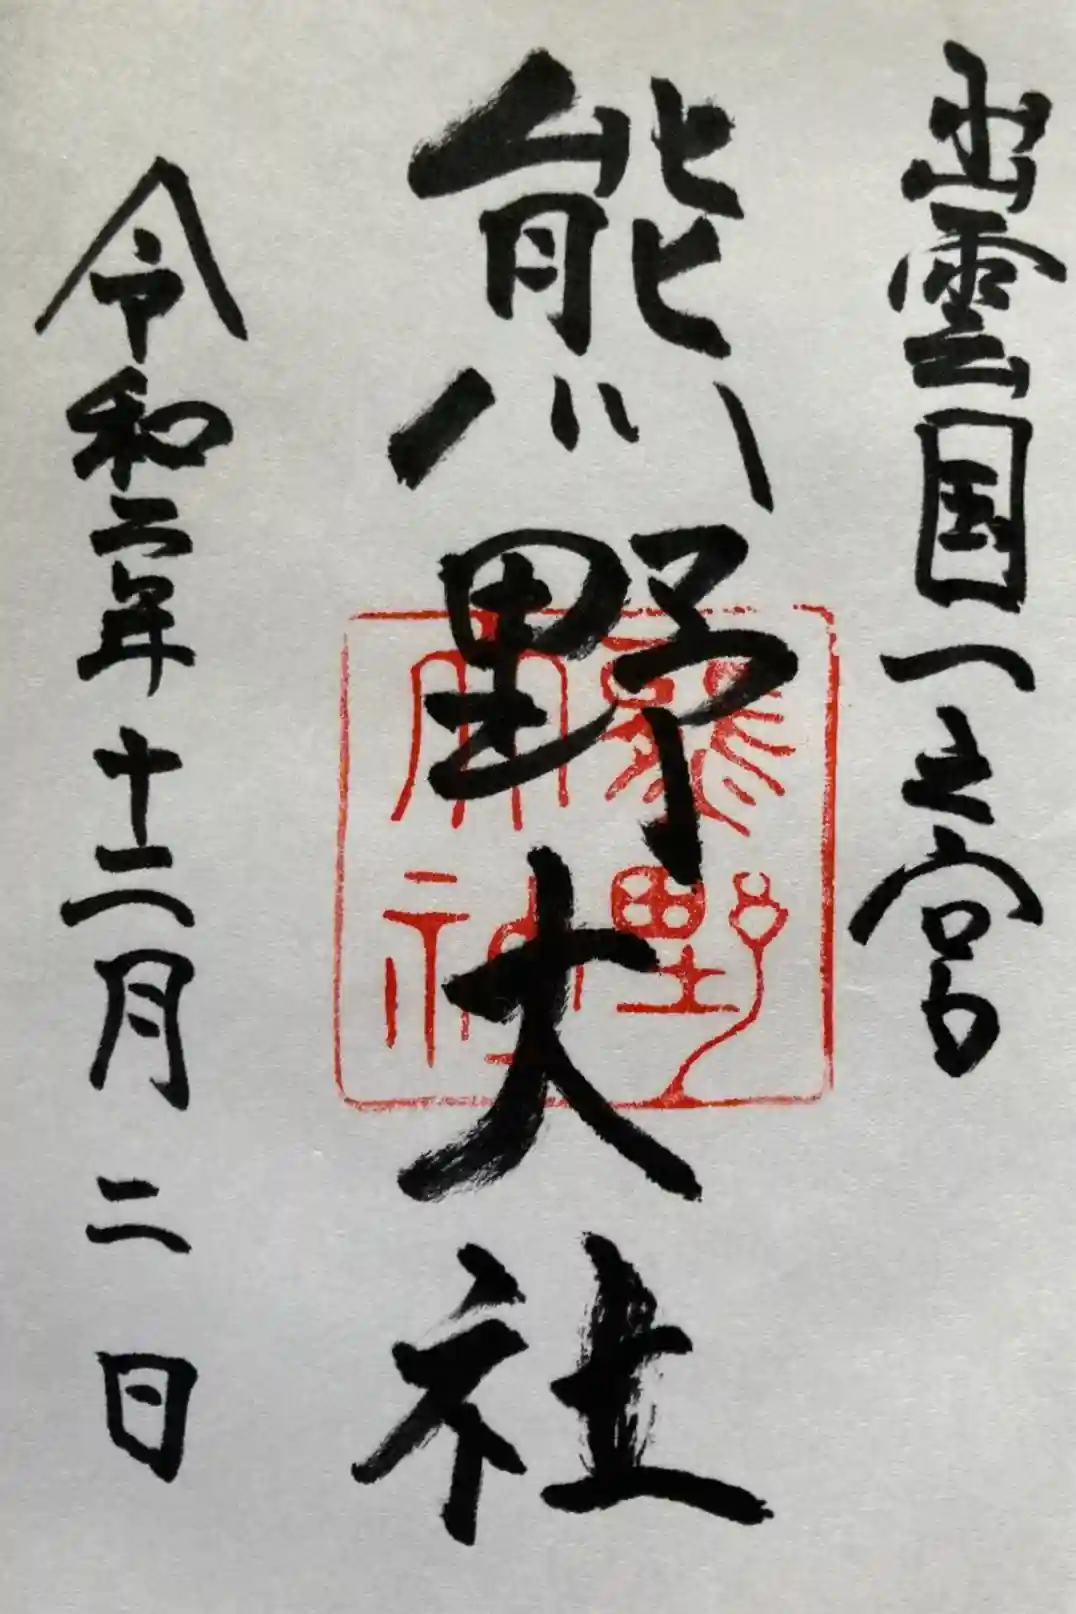 出雲国一之宮
熊野大社
熊野
神
令和二年十二月二日